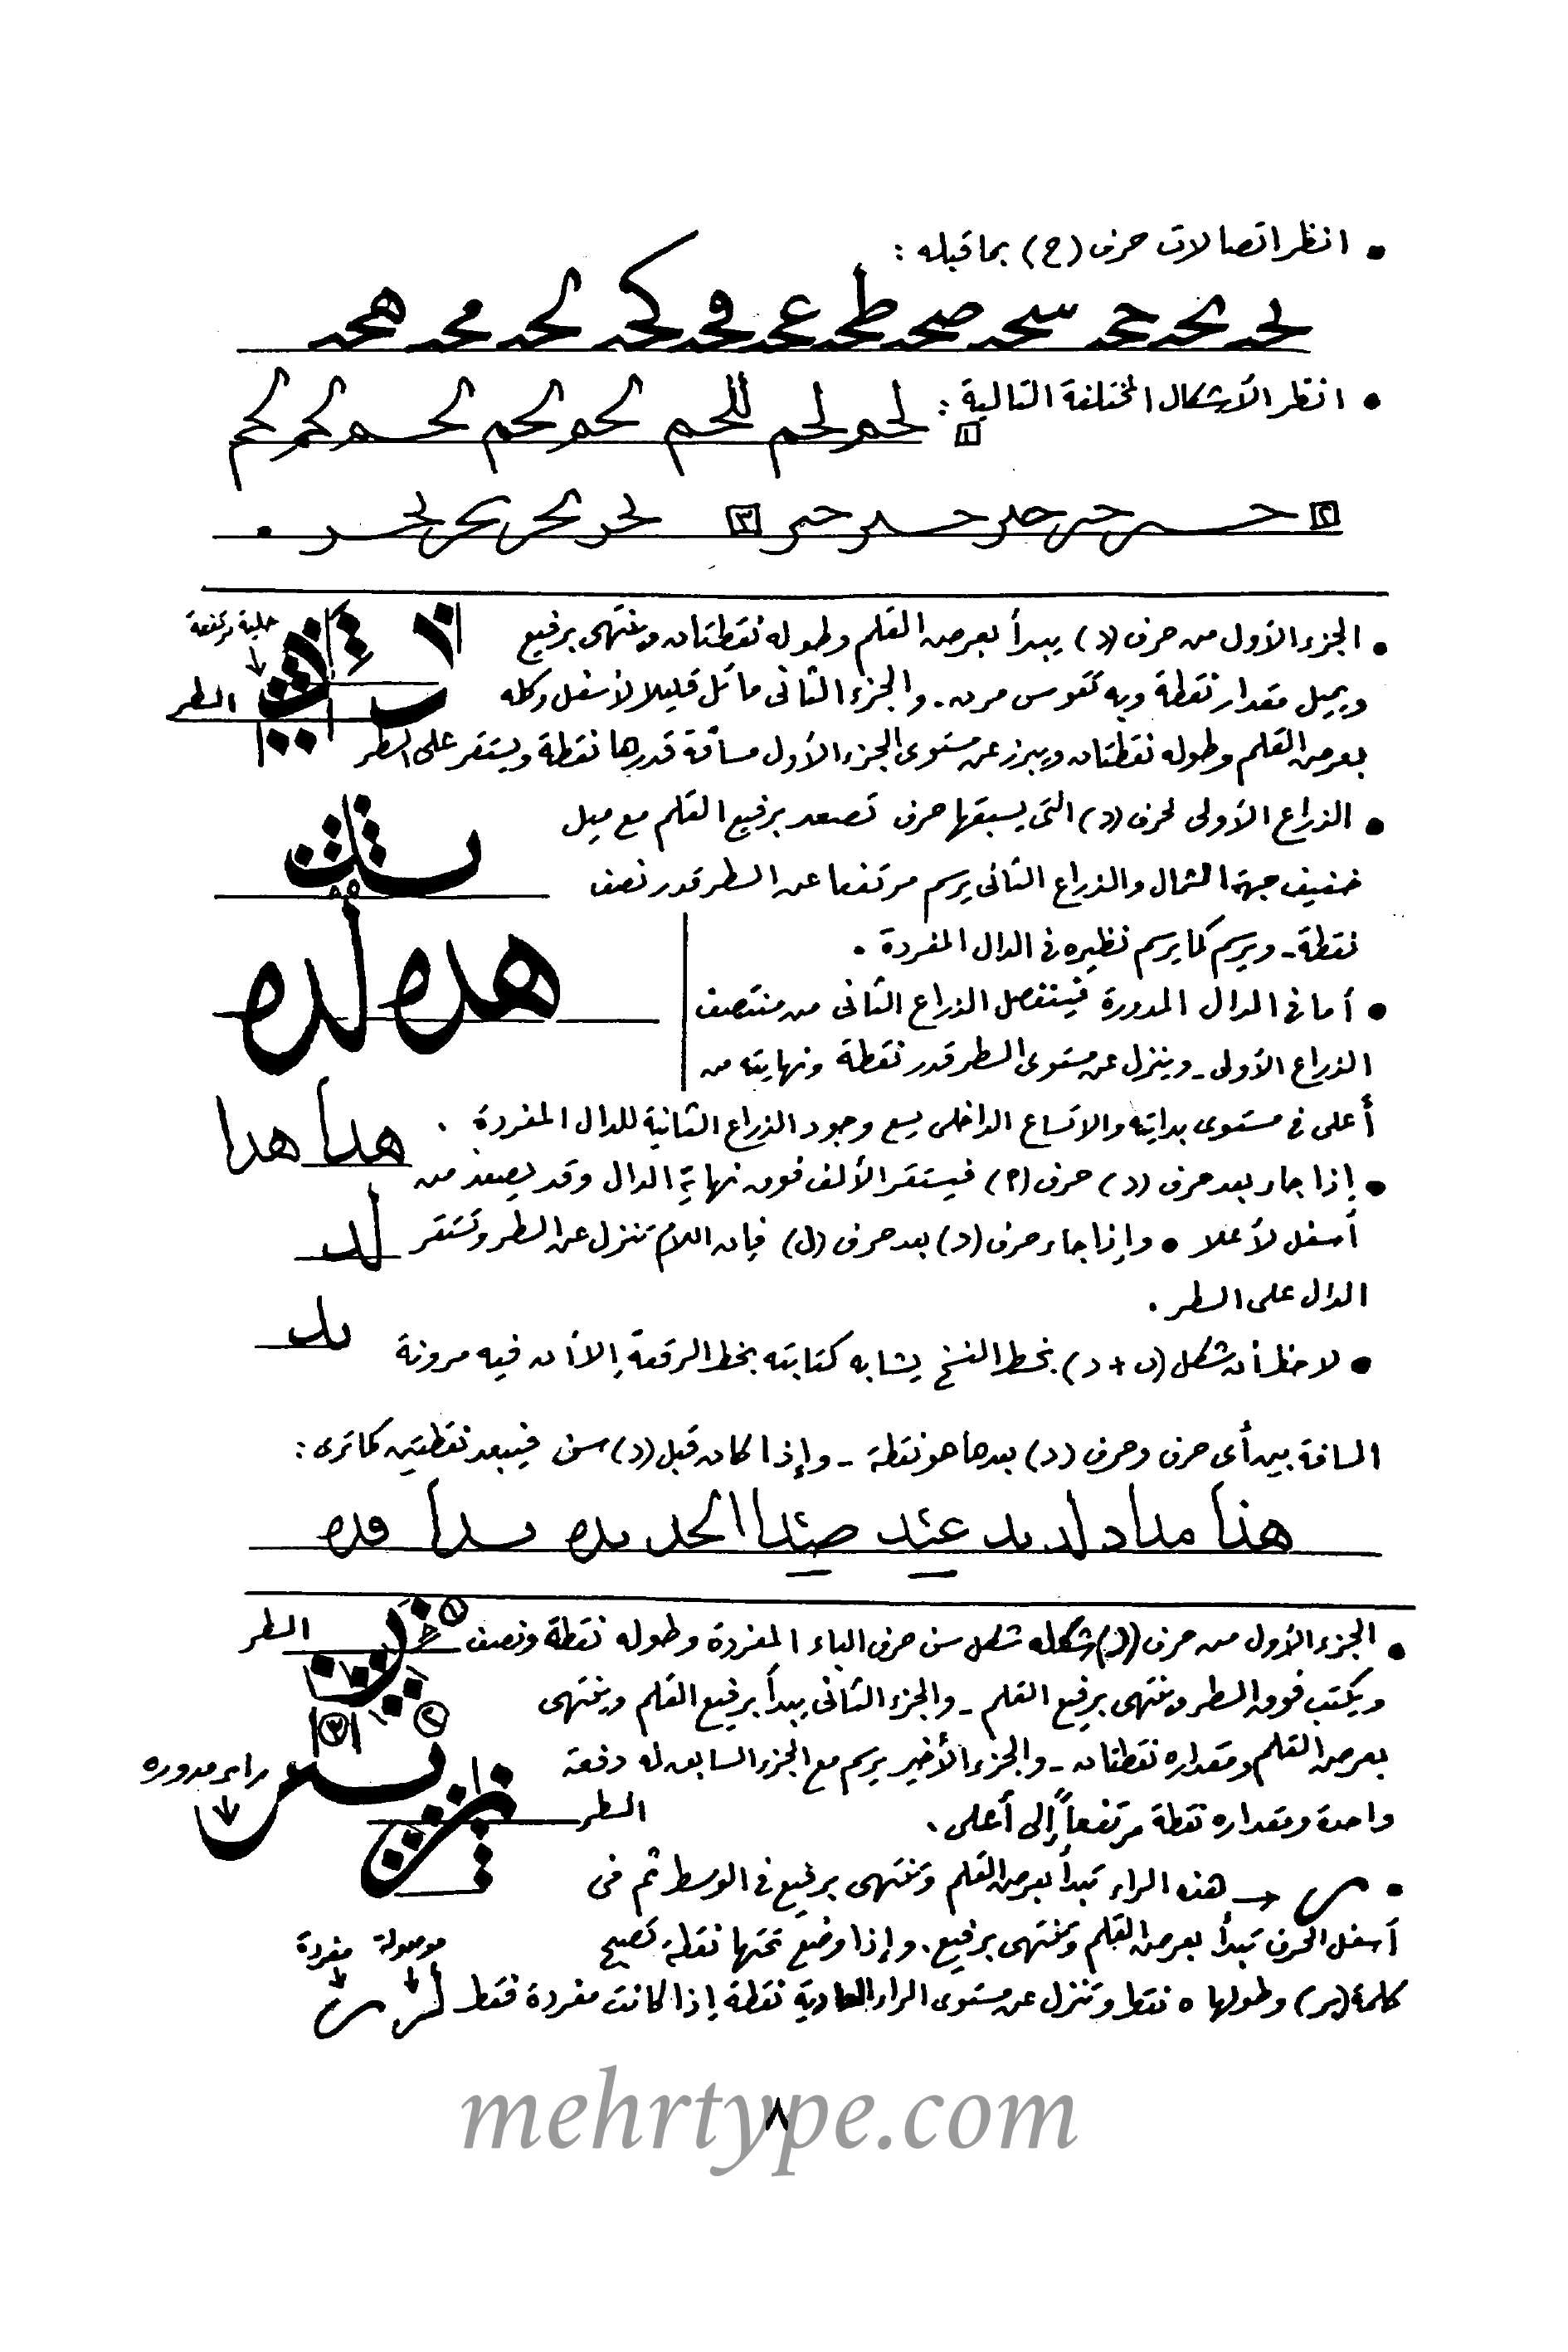 • انظر اتصالات حرف (ح) بما قبله :
• انظر الأشكال المختلفة التالية :
١
٢
٣
• الجزء الأول من حرف (د) يبدأ بعرض القلم وطوله نقطتان وينتهى برفيع
حلية مرتفعة
ويميل مقدار نقطة وبه تقوس مرن . والجزء الثانى مائل قليلا لأسفل وكله
السطر
بعرض القلم وطوله نقطتان ويبرز عن مستوى الجزء الأول مسافة قدرها نقطة ويستقر على السطر
• الذراع الأولى لحرف (د) التى يسبقها حرف تصعد برفيع القلم مع ميل
خفيف جهة الشمال والذراع الثانى يرسم مرتفعا عن السطر قدر نصف
نقطة - ويرسم كما يرسم نظيره فى الدال المفردة .
• أما فى الدال المدورة فينفصل الذراع الثانى من منتصف
الذراع الأولى - وينزل عن مستوى السطر قدر نقطة ونهايته من
أعلى فى مستوى بدايته والاتساع الداخلى يسع وجود الذراع الثانية للدال المفردة .
هدا هدا
• إذا جاء بعد حرف (د) حرف (ا) فيستقر الألف فوق نهاية الدال وقد يصعد من
أسفل لأعلا • وإذا جاء حرف (د) بعد حرف (ل) فإن اللام تنزل عن السطر وتستقر
لد
الدال على السطر .
• لاحظ أن شكل (ں + د) بخط النسخ يشابه كتابته بخط الرقعة إلا أن فيه مرونة
المسافة بين أى حرف وحرف (د) بعدها هو نقطة - وإذا كان قبل (د) سن فيبعد نقطتين كما ترى :
• الجزء الأول من حرف (ر) شكله شكل سن حرف الباء المفردة وطوله نقطة ونصف
١
السطر
ويكتب فوق السطر وينتهى برفيع القلم - والجزء الثانى يبدأ برفيع القلم وينتهى
٢
٣
بعرض القلم ومقداره نقطتان - والجزء الأخير يرسم مع الجزء السابق له دفعة
راء مدوره
واحدة ومقداره نقطة مرتفعاً إلى أعلى .
السطر
• ر ← هذه الراء تبدأ بعرض القلم وتنتهى برفيع فى الوسط ثم فى
أسفل الحرف تبدأ بعرض القلم وتنتهى برفيع . وإذا وضع تحتها نقطة تصبح
موصولة مفردة
كلمة (بر) وطولها ٥ نقط وتنزل عن مستوى الراء العادية نقطة إذا كانت مفردة فقط
٨
mehrtype.com